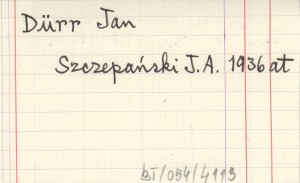 Dürr Jan
Szczepański J.A. 1936 at
BT/054/4113